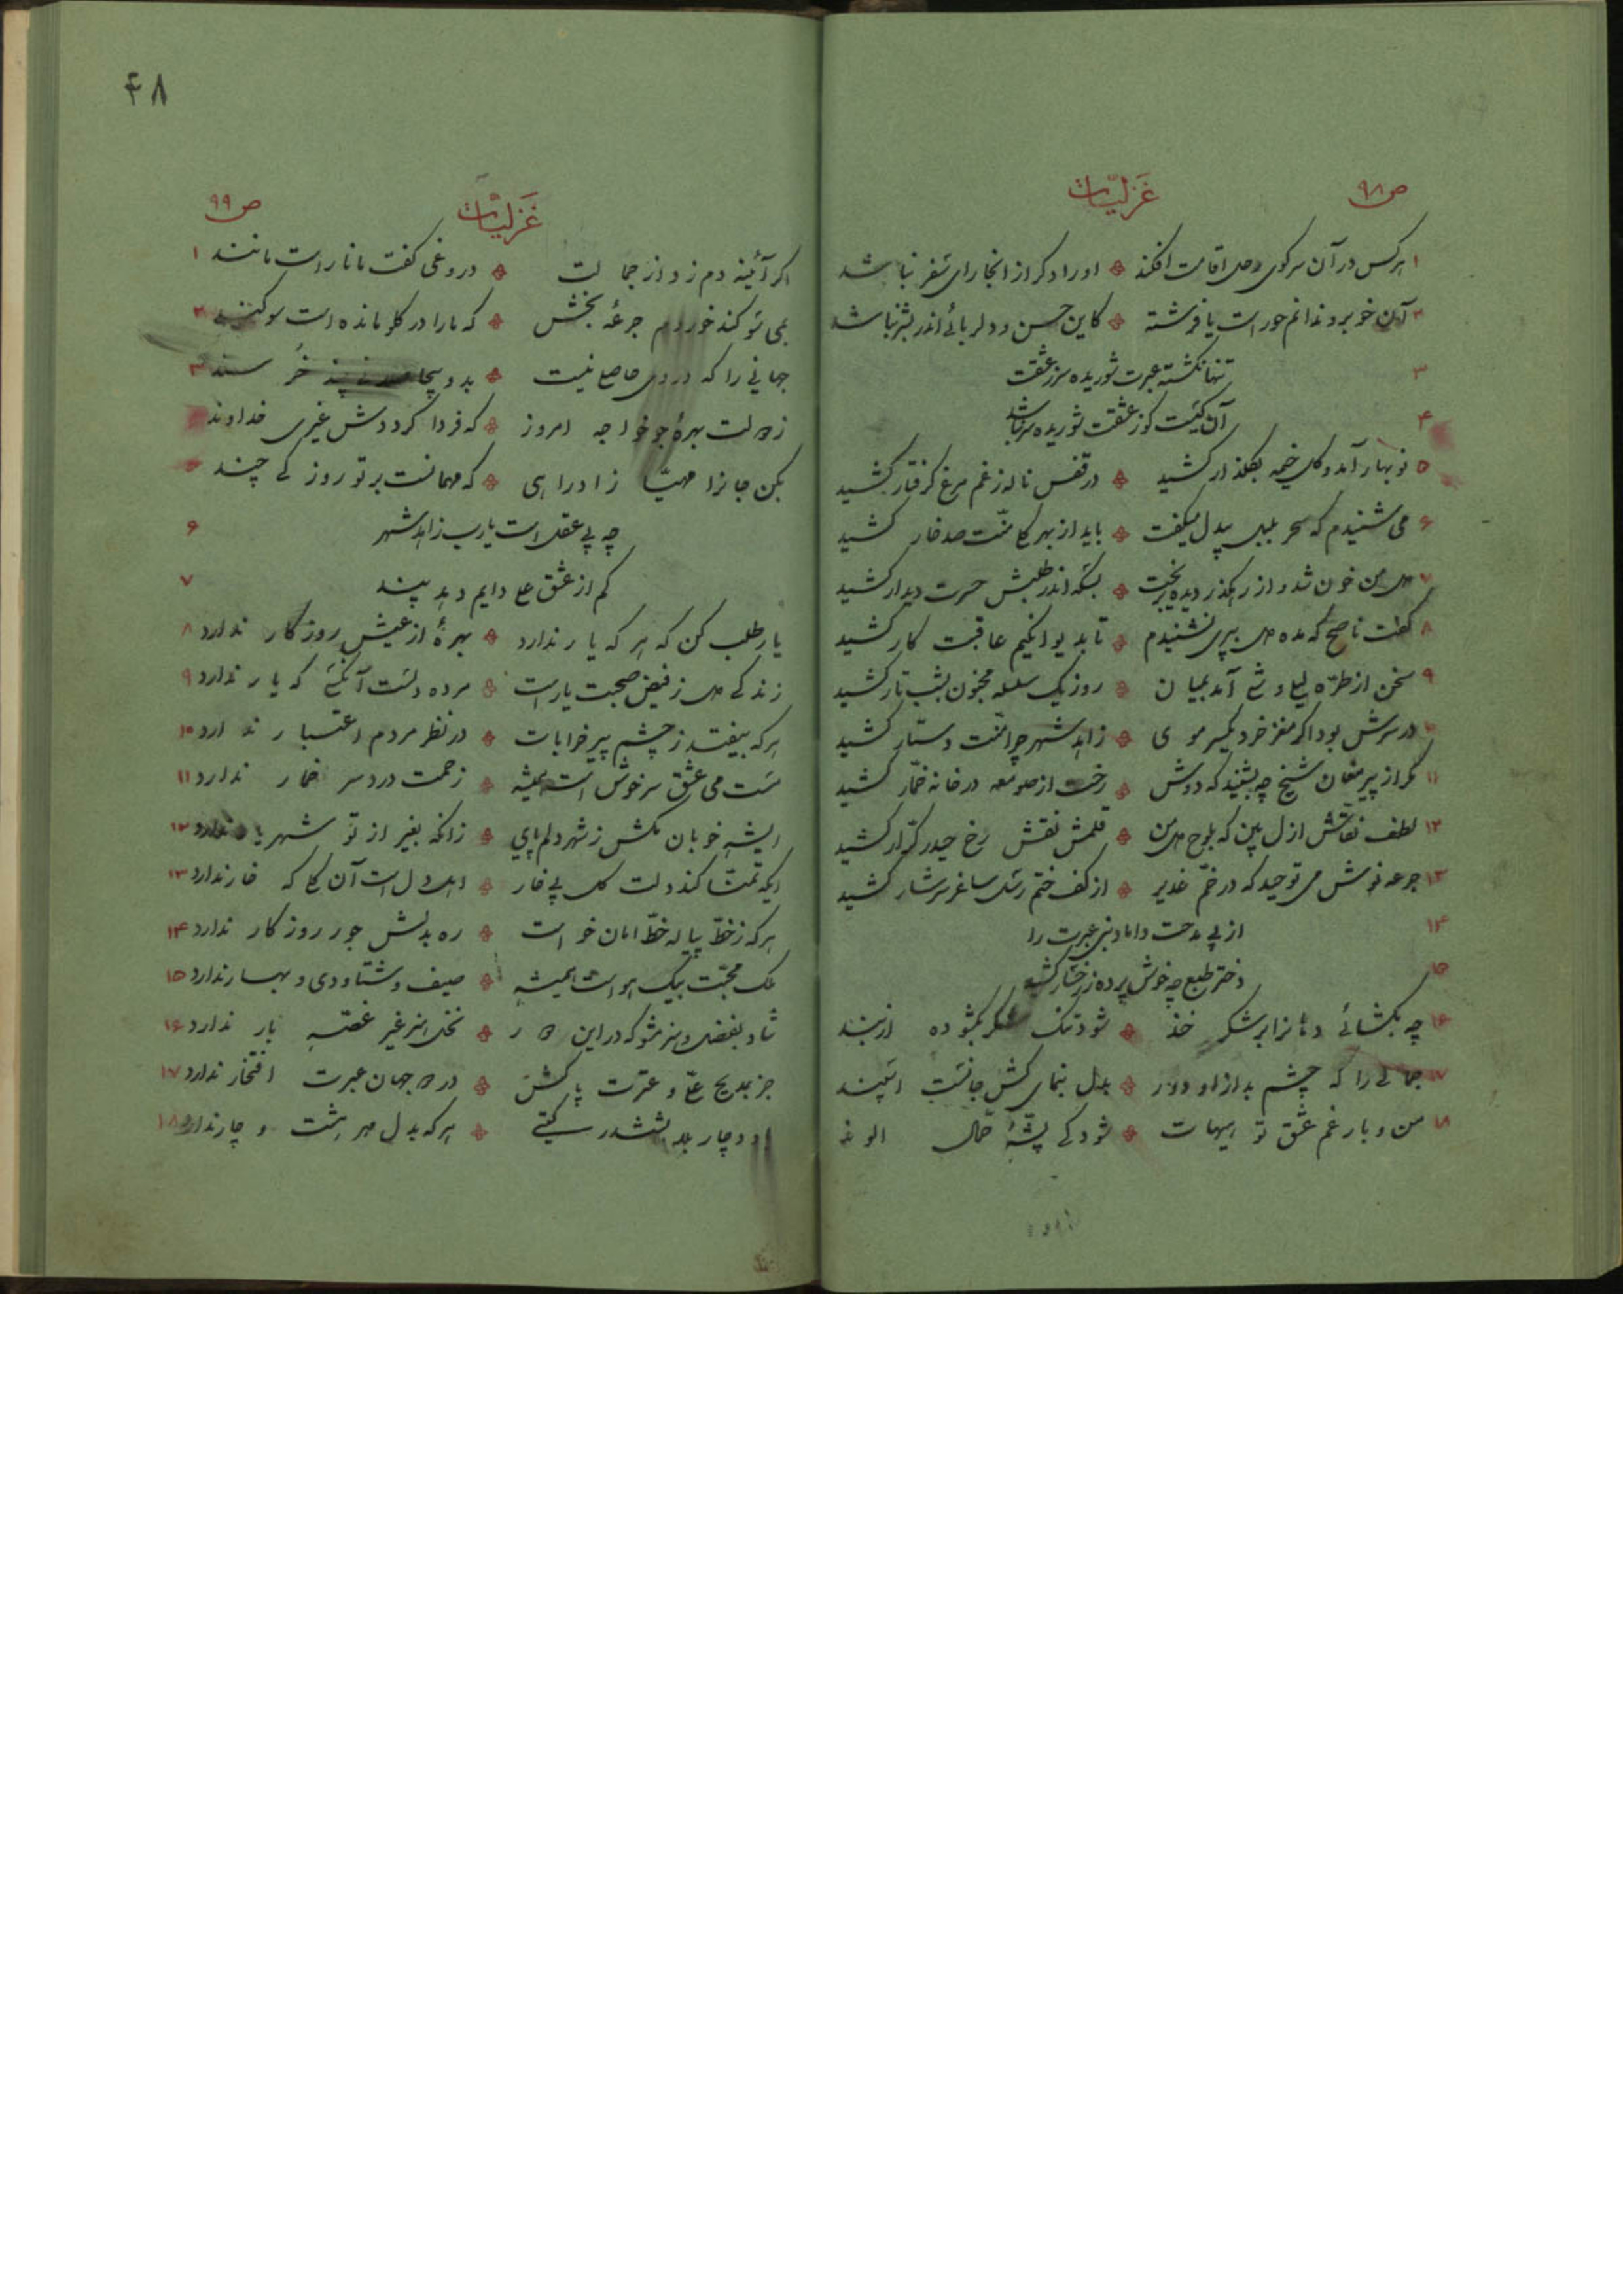 ص۹۸ غزلیات
۱ هرکس در آن سر کوی رحل اقامت افکند ❖ او را دگر از انجا رای سفر نباشد
۲ آن خوبرو ندانم حور است یا فرشته ❖ کاین حسن و دلربائی اندر بشر نباشد
۳ تنها نگشته عبرت شوریده سر ز عشقت
۴ آن کیست کز عشقت شوریده سر نباشد
۵ نوبهار آمد و گل خیمه بگلذار کشید ❖ در قفس ناله ز غم مرغ گرفتار کشید
۶ می شنیدم که سحر بلبل بیدل میگفت ❖ باید از بهر گل منت صد خار کشید
۷ دل من خون شد و از رهگذر دیده بریخت ❖ بسکه اندر طلبش حسرت دیدار کشید
۸ گفت ناصح که مده دل بپری نشنیدم ❖ تا بدیوانگیم عاقبت کار کشید
۹ سخن از طره لیلی و شی آمد بمیان ❖ روز یک سلسله مجنون بشب تار کشید
۱۰ در سرش بود اگر مغز خرد یکسر موی ❖ زاهد شهر چرا منت دستار کشید
۱۱ مگر از پیر مغان شیخ چه بشنید که دوش ❖ رخت از صومعه در خانه خمّار کشید
۱۲ لطف نقاش ازل بین که بلوح دل من ❖ قلمش نقش رخ حیدر کرّار کشید
۱۳ جرعه نوش می توحید که در خمّ غدیر ❖ از کف ختم رسل ساغر سرشار کشید
۱۴ از پی مدحت داماد نبی عبرت را
۱۵ دختر طبع چه خوش پرده ز رخسار کشید
۱۶ چه بگشائی دهانرا بر شکر خند ❖ شود تنگ شکر بگشوده از بند
۱۷ جمالی را که چشم بد از او دور ❖ بدل بنمای کش جانست اسپند
۱۸ من و بار غم عشق تو هیهات ❖ شود کی پشّهٔ حمّال الوند
۴۸
ص۹۹ غزلیات
اگر آئینه دم زد از جمالت ❖ دروغی گفت مانا راست مانند ۱
بمی سوگند خوردم جرعهٔ بخش ❖ که ما را در گلو مانده است سوگند ۲
جهانی را که دروی حاصلی نیست ❖ خرسند ۳
ز دولت بهرهٔ جو خواجه امروز ❖ که فردا گردد‌ش غیری خداوند
بکن جانرا مهیّا زاد راهی ❖ که مهمانست بر تو روزکی چند
چه بی عقل است یارب زاهد شهر ۶
کم از عشق علی دایم دهد پند ۷
یار طلب کن که هر که یار ندارد ❖ بهرهٔ از عیش روزگار ندارد ۸
زندگی دل ز فیض صحبت یار است ❖ مرده دلست آنکسی که یار ندارد ۹
هر که بیفتد ز چشم پیر خرابات ❖ در نظر مردم اعتبار ندارد ۱۰
مست می عشق سرخوش است همیشه ❖ زحمت درد سر خمار ندارد ۱۱
ای شه خوبان مکش ز شهر دلم پای ❖ زانکه بغیر از تو شهریار ندارد ۱۲
ایکه تمنّا کند دلت گل بی خار ❖ اهل دل است آن گل که خار ندارد ۱۳
هر که ز خطّ پیاله خطّ امان خواست ❖ ره بدلش جور روزگار ندارد ۱۴
ملک محبّت بیک هواست همیشه ❖ صیف و شتا و دی و بهار ندارد ۱۵
شاد بفضل و هنر مشو که در این دار ❖ نخل هنر غیر غصّه بار ندارد ۱۶
جز بمدیح علیّ و عترت پاکش ❖ در دو جهان عبرت افتخار ندارد ۱۷
او دچار بلا بششدر گیتی ❖ هر که بدل مهر هشت و چار ندارد ۱۸